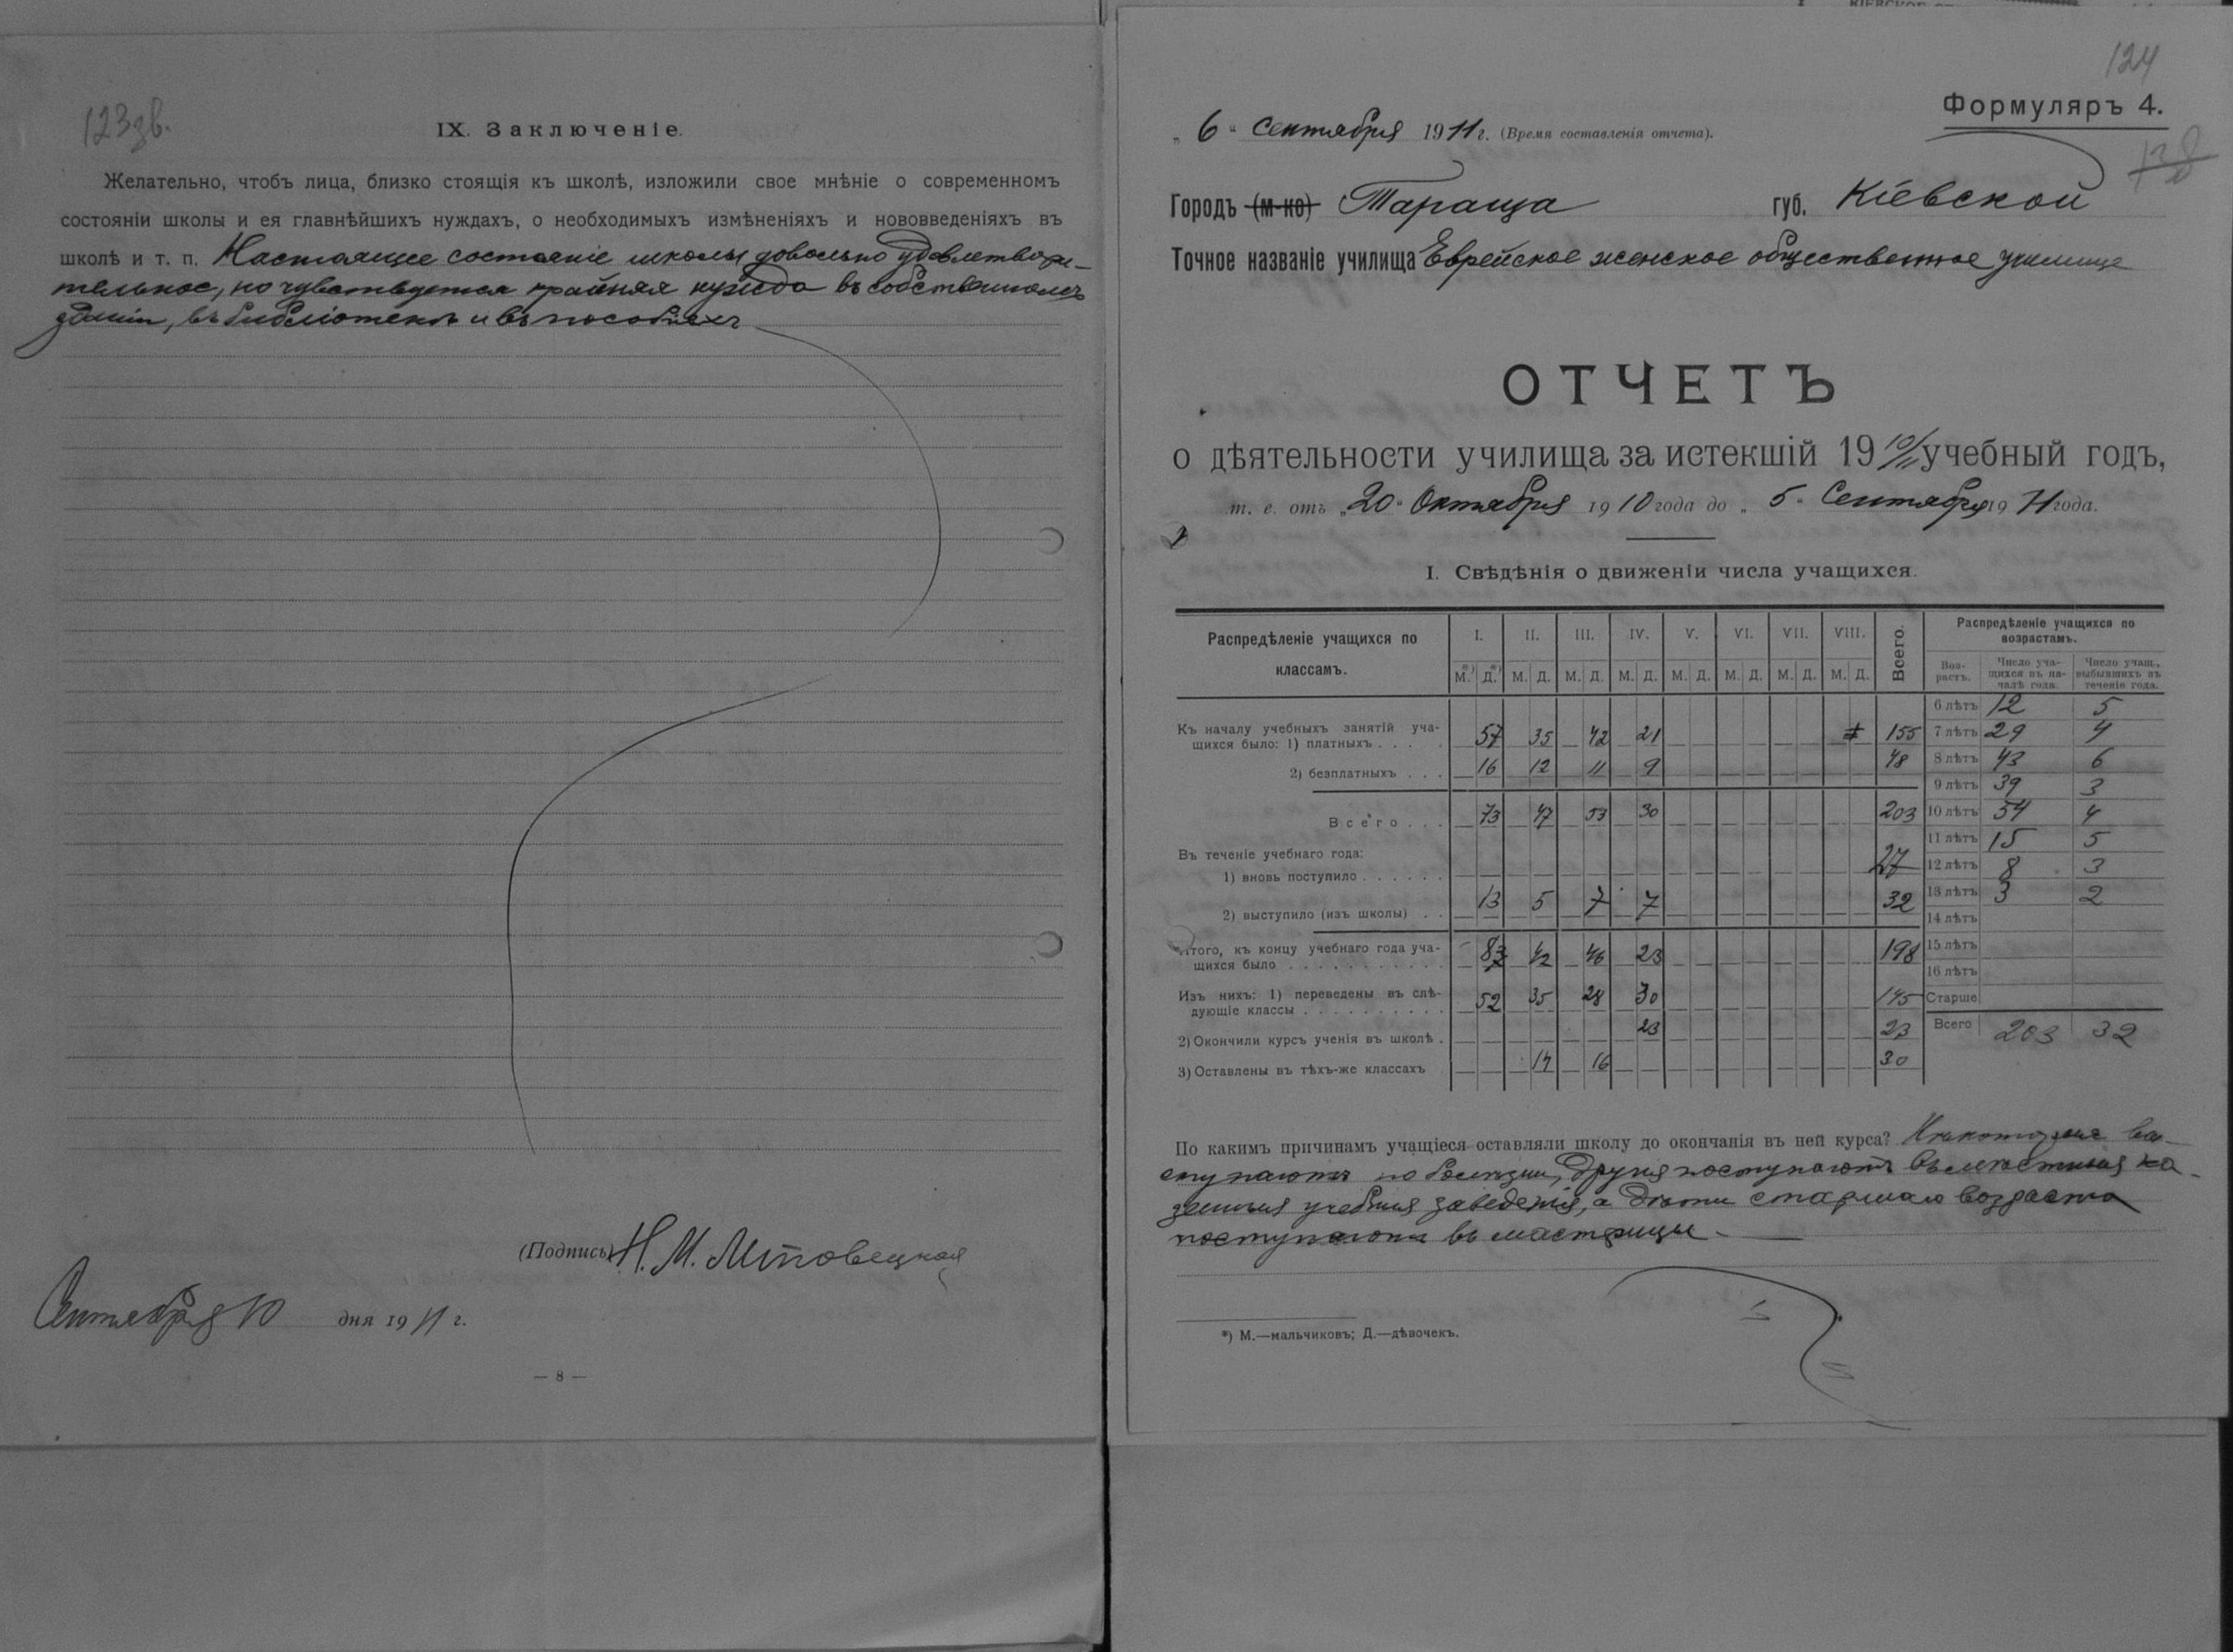 123 зв.
IX. Заключеніе.
Желательно, чтобъ лица, близко стоящія къ школѣ, изложили свое мнѣніе о современномъ
состояніи школы и ея главнѣйшихъ нуждахъ, о необходимыхъ измѣненіяхъ и нововведеніяхъ въ
школѣ и т. п. Настоящее состояніе школы довольно удовлетвори-
тельное, но чувствуется крайняя нужда въ собственномъ
зданіи, въ библіотекѣ и въ пособіяхъ
(Подпись) Н. М.
Сентября 10 дня 1911 г.
— 8 —
124
Формуляръ 4.
138
„6“ Сентября 1911 г. (Время составленія отчета).
Городъ (м-ко) Тараща губ. Кіевской
Точное названіе училища Еврейское женское общественное училище
ОТЧЕТЪ
о дѣятельности училища за истекшій 1910/11 учебный годъ,
т. е. отъ „20“ Октября 1910 года до „5“ Сентября 1911 года.
I. Свѣдѣнія о движеніи числа учащихся.
Распредѣленіе учащихся по классамъ. I. II. III. IV. V. VI. VII. VIII. Всего.
М.*) Д.*) М. Д. М. Д. М. Д. М. Д. М. Д. М. Д. М. Д.
Къ началу учебныхъ занятій уча-
щихся было: 1) платныхъ . . . . 57 35 42 21 155
2) безплатныхъ . . . 16 12 11 9 48
Всего . . . 73 47 53 30 203
Въ теченіе учебнаго года:
1) вновь поступило . . . . . . 27
2) выступило (изъ школы) . . 13 5 7 7 32
Итого, къ концу учебнаго года уча-
щихся было . . . . . . . . . . . 42 46 23 198
Изъ нихъ: 1) переведены въ слѣ-
дующіе классы . . . . . . . . . . 52 35 28 30 145
2) Окончили курсъ ученія въ школѣ . 23 23
3) Оставлены въ тѣхъ-же классахъ 14 16 30
Распредѣленіе учащихся по возрастамъ.
Воз-растъ. Число уча-щихся въ на-чалѣ года. Число учащ., выбывшихъ въ теченіе года.
6 лѣтъ 12 5
7 лѣтъ 29 4
8 лѣтъ 43 6
9 лѣтъ 39 3
10 лѣтъ 54 4
11 лѣтъ 15 5
12 лѣтъ 8 3
13 лѣтъ 3 2
14 лѣтъ
15 лѣтъ
16 лѣтъ
Старше
Всего 203 32
По какимъ причинамъ учащіеся оставляли школу до окончанія въ ней курса? Нѣкоторыя вы-
ступаютъ по болѣзни, другія поступаютъ въ мѣстныя ка-
зенныя учебныя заведенія, а дѣти старшаго возраста
поступаютъ въ мастерицы.
*) М.—мальчиковъ; Д.—дѣвочекъ.